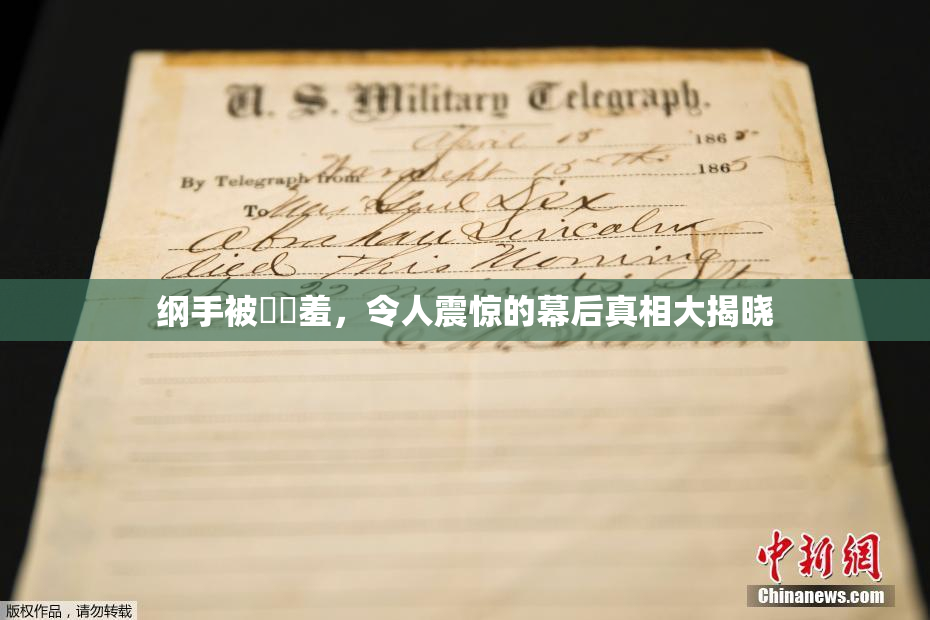 U. S. Military Telegraph.
April 15 1865
By Telegraph from War Dept 15th 1865
To Maj Genl Dix
Abraham Lincoln
died This Morning
at 22 minutes after
纲手被▯▯羞，令人震惊的幕后真相大揭晓
E. M. Stanton
中新網
Chinanews.com
版权作品，请勿转载